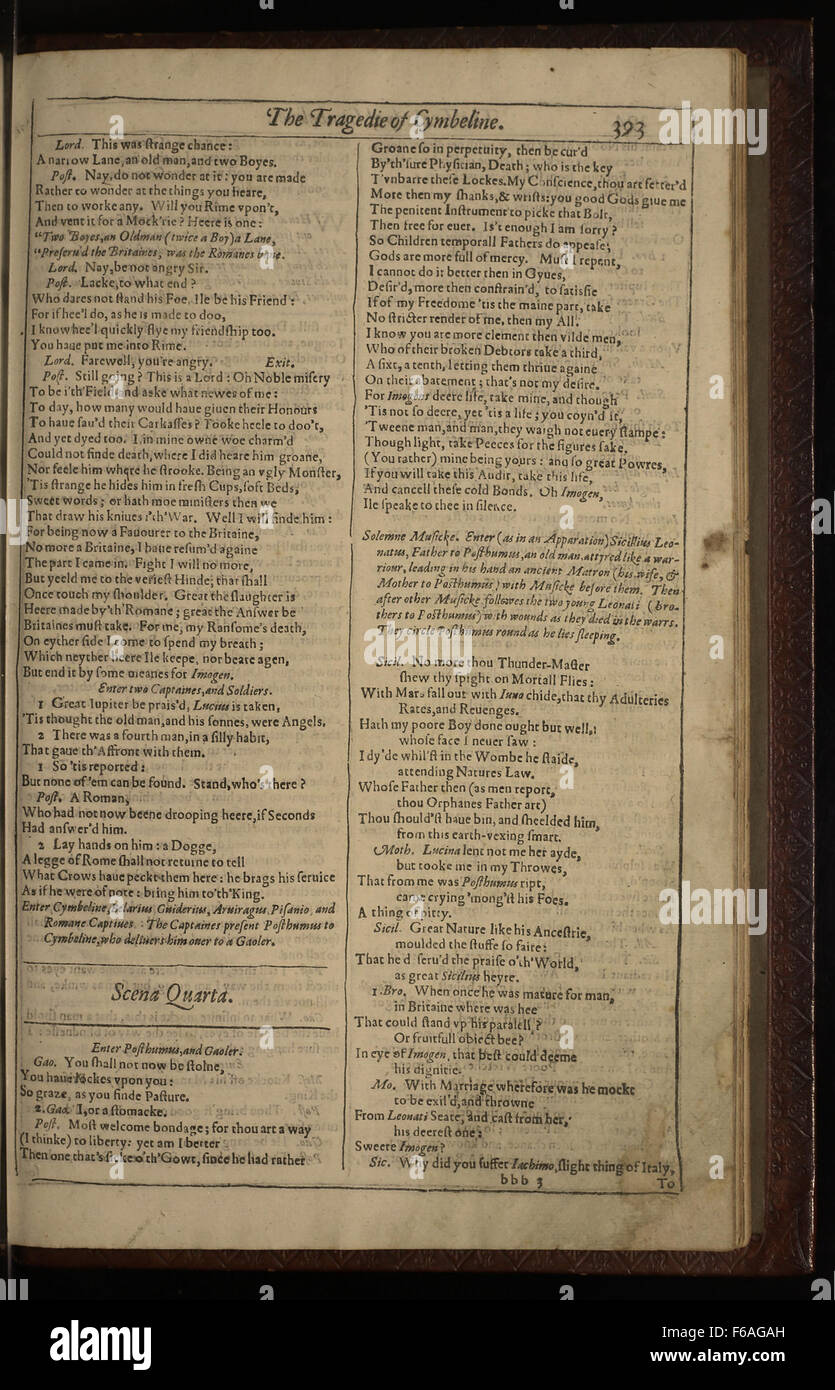 The Tragedie of Cymbeline. 393
Lord. This was ſtrange chance:
A narrow Lane, an old man, and two Boyes.
Poſt. Nay, do not wonder at it: you are made
Rather to wonder at the things you heare,
Then to worke any. Will you Rime vpon't,
And vent it for a Mock'rie? Heere is one:
"Two Boyes, an Oldman (twice a Boy) a Lane,
"Preſeru'd the Britaines, was the Romanes bane.
Lord. Nay, be not angry Sir.
Poſt. Lacke, to what end?
Who dares not ſtand his Foe, Ile be his Friend:
For if hee'l do, as he is made to doo,
I know hee'l quickly flye my friendſhip too.
You haue put me into Rime.
Lord. Farewell, you're angry. Exit.
Poſt. Still going? This is a Lord: Oh Noble miſery
To be i'th' Field, and aske what newes of me:
To day, how many would haue giuen their Honours
To haue ſau'd their Carkaſſes? Tooke heele to doo't,
And yet dyed too. I, in mine owne woe charm'd
Could not finde death, where I did heare him groane,
Nor feele him where he ſtrooke. Being an vgly Monſter,
'Tis ſtrange he hides him in freſh Cups, ſoft Beds,
Sweet words; or hath moe miniſters then we
That draw his kniues i'th' War. Well I will finde him:
For being now a Fauourer to the Britaine,
No more a Britaine, I haue reſum'd againe
The part I came in. Fight I will no more,
But yeeld me to the verieſt Hinde, that ſhall
Once touch my ſhoulder. Great the ſlaughter is
Heere made by'th' Romane; great the Anſwer be
Britaines muſt take. For me, my Ranſome's death,
On eyther ſide I come to ſpend my breath;
Which neyther heere Ile keepe, nor beare agen,
But end it by ſome meanes for Imogen.
Enter two Captaines, and Soldiers.
1 Great Iupiter be prais'd, Lucius is taken,
'Tis thought the old man, and his ſonnes, were Angels.
2 There was a fourth man, in a ſilly habit,
That gaue th'Affront with them.
1 So 'tis reported:
But none of 'em can be found. Stand, who's there?
Poſt. A Roman,
Who had not now beene drooping heere, if Seconds
Had anſwer'd him.
2 Lay hands on him: a Dogge,
A legge of Rome ſhall not returne to tell
What Crows haue peckt them here: he brags his ſeruice
As if he were of note: bring him to'th' King.
Enter Cymbeline, Belarius, Guiderius, Aruiragus, Piſanio, and
Romane Captiues. The Captaines preſent Poſthumus to
Cymbeline, who deliuers him ouer to a Gaoler.
Scena Quarta.
Enter Poſthumus, and Gaoler.
Gao. You ſhall not now be ſtolne,
You haue lockes vpon you:
So graze, as you finde Paſture.
2. Gao. I, or a ſtomacke.
Poſt. Moſt welcome bondage; for thou art a way
(I thinke) to liberty: yet am I better
Then one that's ſicke o'th' Gowt, ſince he had rather
Groane ſo in perpetuity, then be cur'd
By'th' ſure Phyſitian, Death; who is the key
T'vnbarre theſe Lockes. My Conſcience, thou art fetter'd
More then my ſhanks, & wriſts: you good Gods giue me
The penitent Inſtrument to picke that Bolt,
Then free for euer. Is't enough I am ſorry?
So Children temporall Fathers do appeaſe;
Gods are more full of mercy. Muſt I repent,
I cannot do it better then in Gyues,
Deſir'd, more then conſtrain'd, to ſatisfie
If of my Freedome 'tis the maine part, take
No ſtricter render of me, then my All.
I know you are more clement then vilde men,
Who of their broken Debtors take a third,
A ſixt, a tenth, letting them thriue againe
On their abatement; that's not my deſire.
For Imogens deere life, take mine, and though
'Tis not ſo deere, yet 'tis a life; you coyn'd it,
'Tweene man, and man, they waigh not euery ſtampe:
Though light, take Peeces for the figures ſake,
(You rather) mine being yours: and ſo great Powres,
If you will take this Audit, take this life,
And cancell theſe cold Bonds. Oh Imogen,
Ile ſpeake to thee in ſilence.
Solemne Muſicke. Enter (as in an Apparation) Sicillius Leo-
natus, Father to Poſthumus, an old man, attyred like a war-
riour, leading in his hand an ancient Matron (his wife, &
Mother to Poſthumus) with Muſicke before them. Then
after other Muſicke, followes the two young Leonati (bro-
thers to Poſthumus) with wounds as they died in the warrs.
They circle Poſthumus round as he lies ſleeping.
Sicil. No more thou Thunder-Maſter
ſhew thy ſpight, on Mortall Flies:
With Mars fall out with Iuno chide, that thy Adulteries
Rates, and Reuenges.
Hath my poore Boy done ought but well,
whoſe face I neuer ſaw:
I dy'de whil'ſt in the Wombe he ſtaide,
attending Natures Law.
Whoſe Father then (as men report,
thou Orphanes Father art)
Thou ſhould'ſt haue bin, and ſheelded him,
from this earth-vexing ſmart.
Moth. Lucina lent not me her ayde,
but tooke me in my Throwes,
That from me was Poſthumus ript,
came crying 'mong'ſt his Foes.
A thing of pitty.
Sicil. Great Nature like his Anceſtrie,
moulded the ſtuffe ſo faire:
That he d ſeru'd the praiſe o'th' World,
as great Sicilius heyre.
1. Bro. When once he was mature for man,
in Britaine where was hee
That could ſtand vp his paralell?
Or fruitfull obiect bee?
In eye of Imogen, that beſt could deeme
his dignitie.
Mo. With Marriage wherefore was he mockt
to be exil'd, and throwne
From Leonati Seate, and caſt from her,
his deereſt one:
Sweete Imogen?
Sic. Why did you ſuffer Iachimo, ſlight thing of Italy,
bbb 3 To
alamy
alamy stock photo
F6AGAH
www.alamy.com